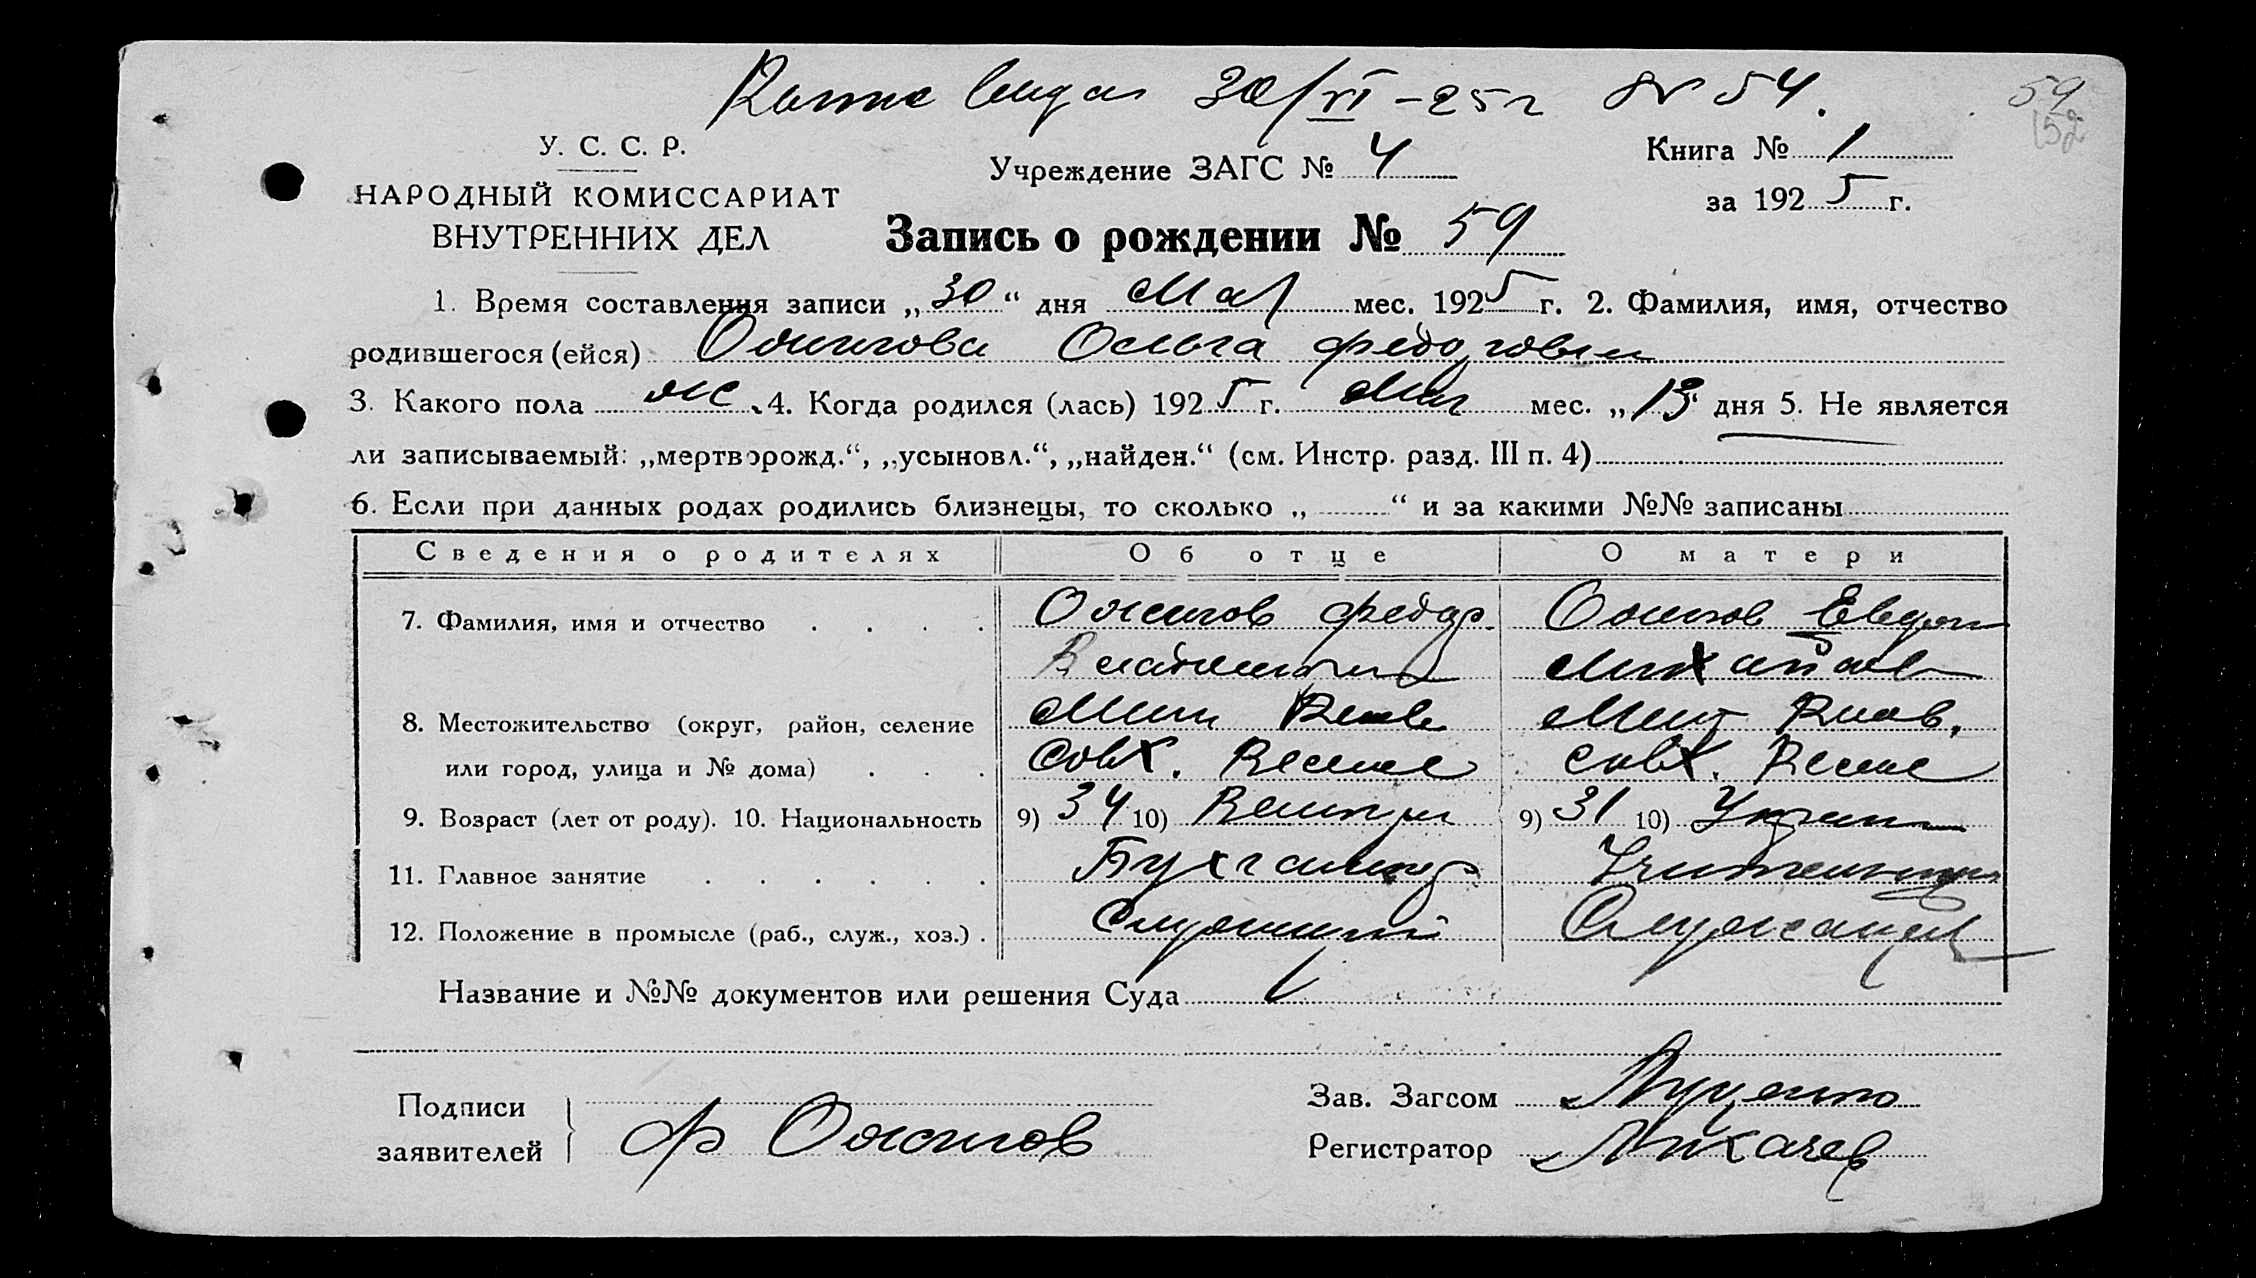 30/VI-25г № 54.
59
152
У. С. С. Р.
НАРОДНЫЙ КОМИССАРИАТ
ВНУТРЕННИХ ДЕЛ
Учреждение ЗАГС № 4
Книга № 1
за 1925 г.
Запись о рождении № 59
1. Время составления записи „30“ дня Мая мес. 1925 г. 2. Фамилия, имя, отчество
родившегося (ейся) Ольга Федоровна
3. Какого пола ж. 4. Когда родился (лась) 1925 г. Мая мес. „13“ дня 5. Не является
ли записываемый: „мертворожд.“, „усыновл.“, „найден.“ (см. Инстр. разд. III п. 4)
6. Если при данных родах родились близнецы, то сколько „ “ и за какими №№ записаны
Сведения о родителях Об отце О матери
7. Фамилия, имя и отчество Федор
8. Местожительство (округ, район, селение
или город, улица и № дома) совх. совх.
9. Возраст (лет от роду). 10. Национальность 9) 34 10) 9) 31 10) Украин
11. Главное занятие Бухгалтер Учительница
12. Положение в промысле (раб., служ., хоз.) Служащий Служащая
Название и №№ документов или решения Суда
Подписи
заявителей
Ф
Зав. Загсом Луценко
Регистратор Лихачев